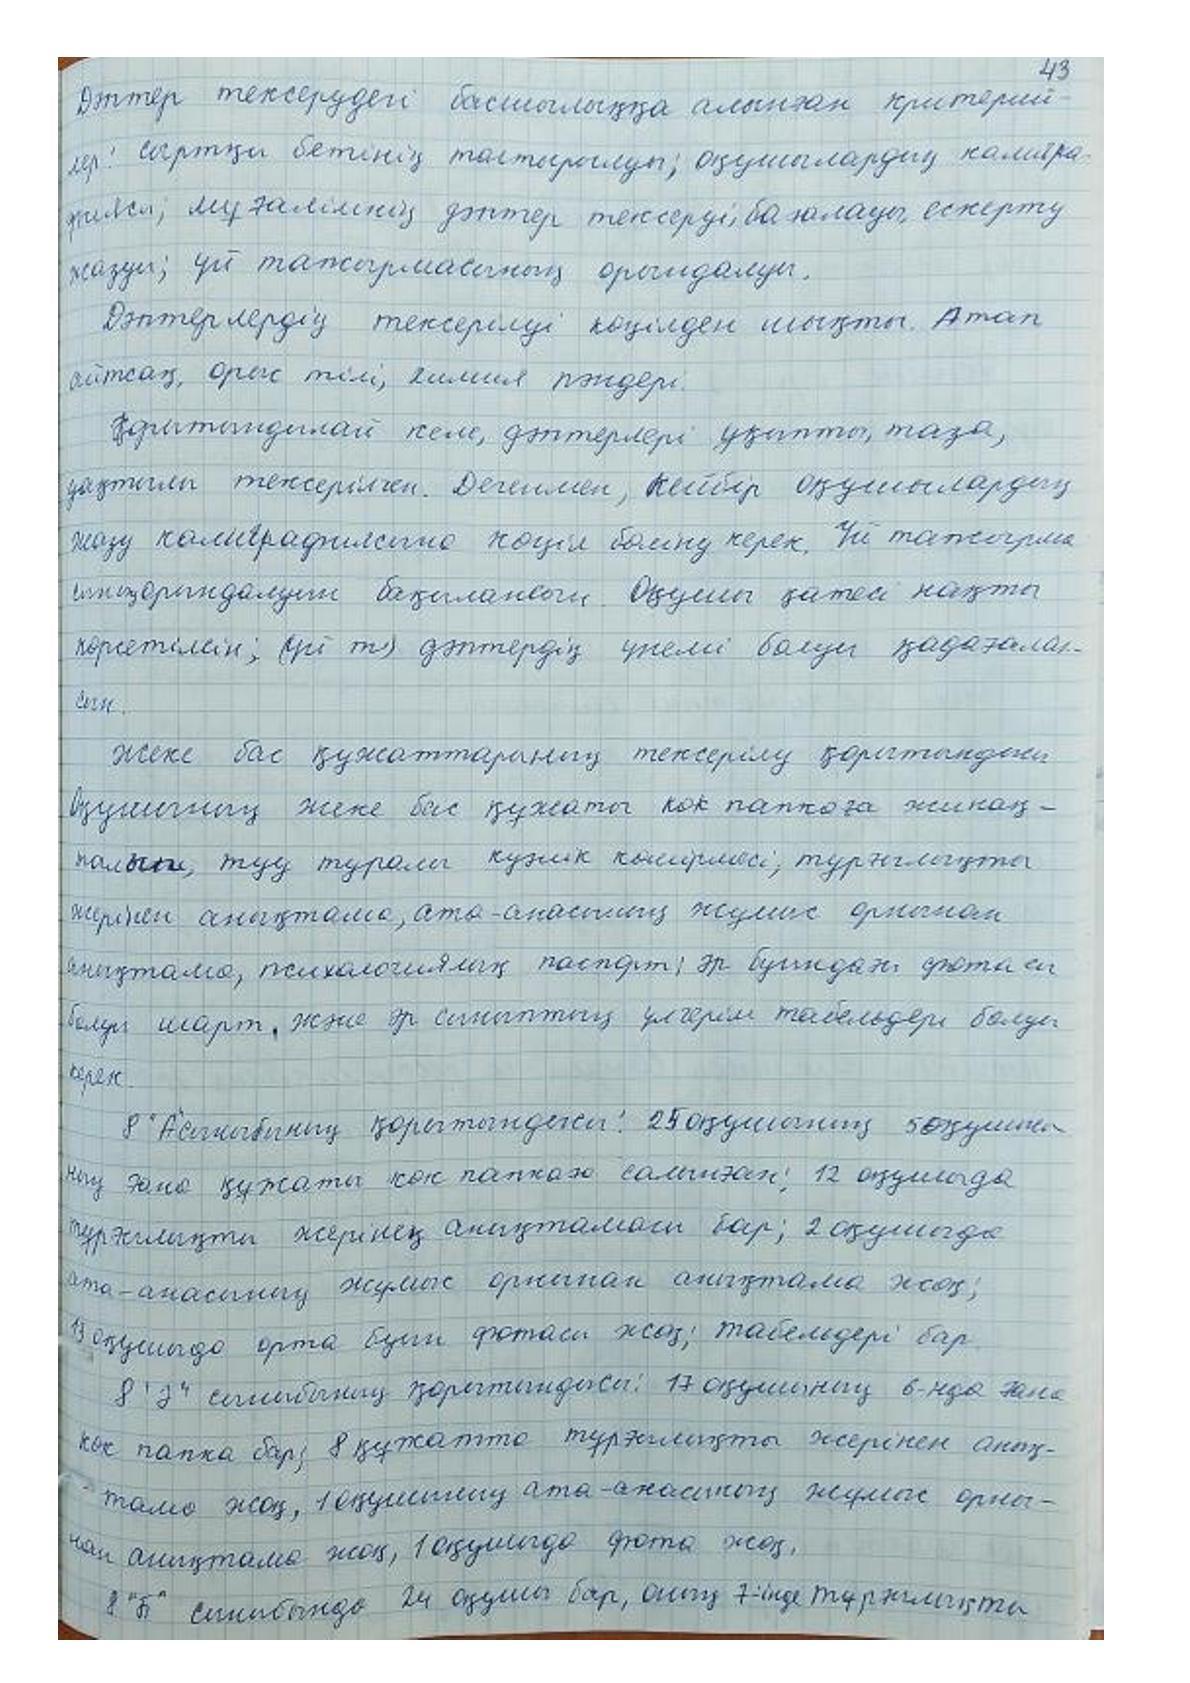 43
Дәптер тексерудегі басшылыққа алынған критерий-
лер: сыртқы бетінің толтырылуы; оқушылардың каллигра-
фиясы; мұғалімнің дәптер тексеруі, бағалауы, ескерту
жазуы; үй тапсырмасының орындалуы.
Дәптерлердің тексерілуі көңілден шықты. Атап
айтсақ, орыс тілі, химия пәндері.
Қорытындылай келе, дәптерлері ұқыпты, таза,
уақтылы тексерілген. Дегенмен, кейбір оқушылардың
жазу калиграфиясына көңіл бөліну керек. Үй тапсырма
сының орындалуын бақылансын. Оқушы қатесі нақты
көрсетілсін; (үй т) дәптердің үнемі болуы қадағалан-
сын.
Жеке бас құжаттарының тексерілу қорытындысы
Оқушының жеке бас құжаты көк папкаға жинақ-
талып, туу туралы куәлік көшірмесі, тұрғылықты
жерінен анықтама, ата-анасының жұмыс орнынан
анықтама, психологиялық паспорт; әр буындағы фотосы
болуы шарт, және әр сыныптың үлгерім табельдері болуы
керек.
8 "А" сыныбының қорытындысы: 25 оқушының 5 оқушы
ның ғана құжаты көк папкаға салынған; 12 оқушыда
тұрғылықты жерінің анықтамасы бар; 2 оқушыда
ата-анасының жұмыс орнынан анықтама жоқ;
13 оқушыда орта буын фотосы жоқ; табельдері бар.
8 "Ә" сыныбының қорытындысы: 17 оқушының 6-нда ғана
көк папка бар; 8 құжатта тұрғылықты жерінен анық-
тама жоқ, 1 оқушының ата-анасының жұмыс орны-
нан анықтама жоқ, 1 оқушыда фото жоқ.
8 "Б" сыныбында 24 оқушы бар, оның 7-інде тұрғылықты